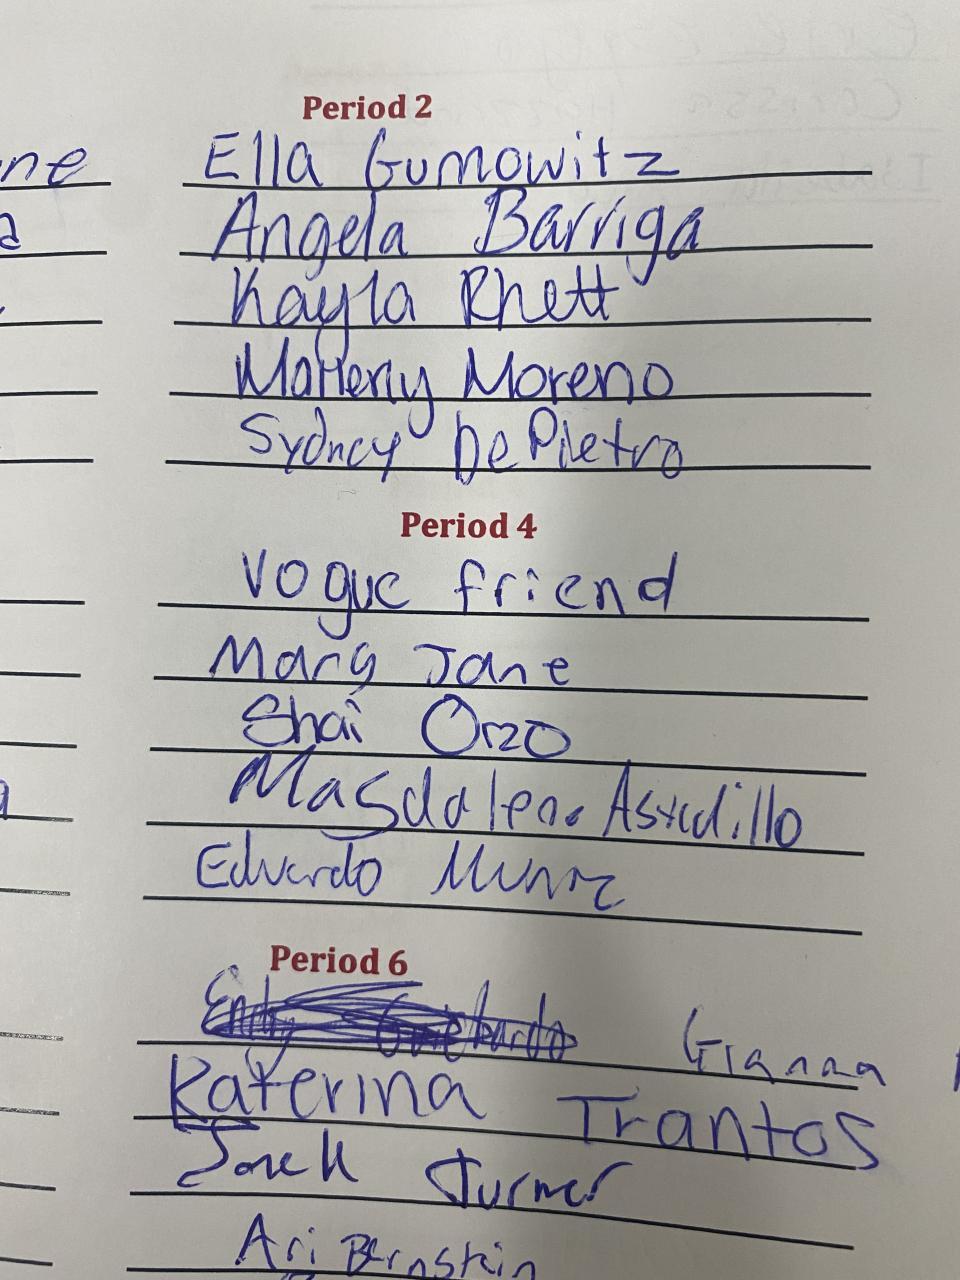 Period 2
Ella Gumowitz
Angela Barriga
Kayla Rhett
Matterly Moreno
Sydney DePietro
Period 4
Vogue friend
Mary Jane
Shai Orzo
Magdalena Astudillo
Eduardo Munoz
Period 6
Gianna
Katerina Trantos
Turner
Ari Bernstein